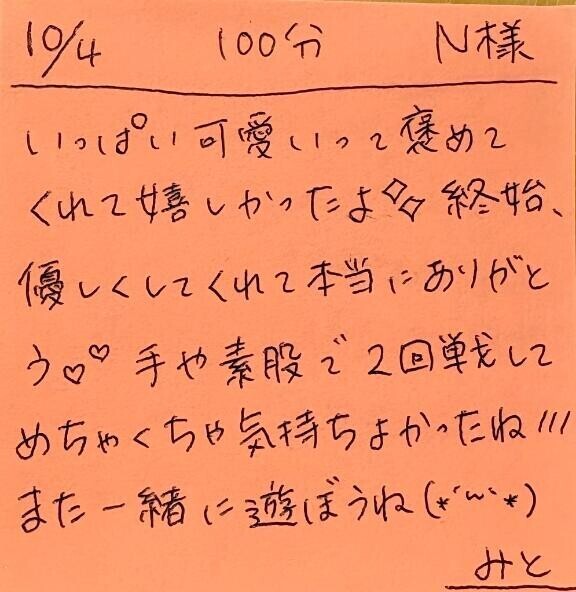 10/4 100分 N様
いっぱい可愛いって褒めて
くれて嬉しかったよ✧✧ 終始、
優しくしてくれて本当にありがと
う♡♡ 手や素股で2回戦して
めちゃくちゃ気持ちよかったね!!!
また一緒に遊ぼうね(*´ω`*)
みと